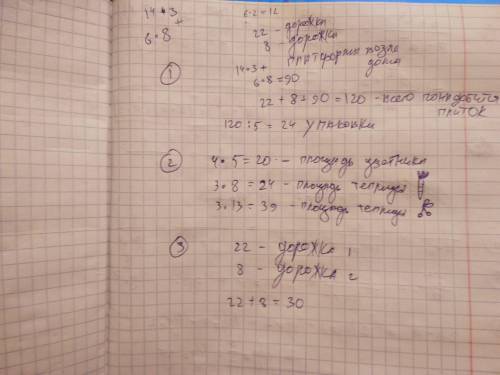 14 • 3 +
6 • 8
6 • 2 = 12
22 – дорожка
8 дорожка
платформы возле дома
①
14 • 3 +
6 • 8 = 90
22 + 8 + 90 = 120 – всего понадобится плиток
120 : 5 = 24 упаковки
② 4 • 5 = 20 – площадь цветника
3 • 8 = 24 – площадь теплицы
3 • 13 = 39 – площадь теплицы
③ 22 – дорожка 1
8 – дорожка 2
22 + 8 = 30